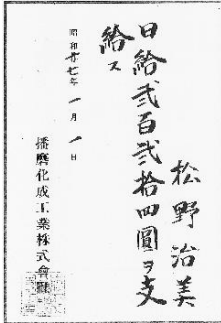 松野治美
日給弐百弐拾四圓ヲ支
給ス
昭和廿七年一月一日
播磨化成工業株式會社